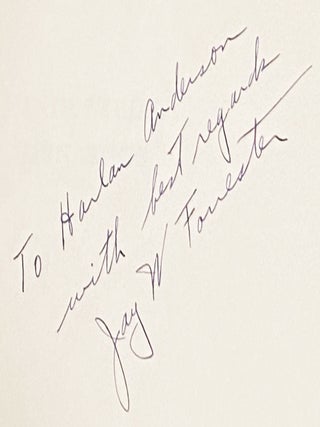 To Harlan Anderson
with best regards
Jay W Forrester